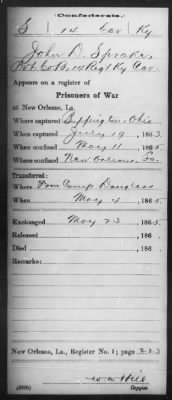 Confederate.
S 14 Cav Ky
John D. Sprake,
Pvt. Co. B, 14 Regt Ky Cav.
Appears on a register of
Prisoners of War
at New Orleans, La.
Where captured Buffington, Ohio
When captured July 19, 1863.
When confined May 11, 1865.
Where confined New Orleans, La.
Transferred:
Where From Camp Douglas
When May 4, 1865.
Exchanged May 23, 1865.
Released , 186 .
Died , 186 .
Remarks:
New Orleans, La., Register No. 1; page 223
Copyist.